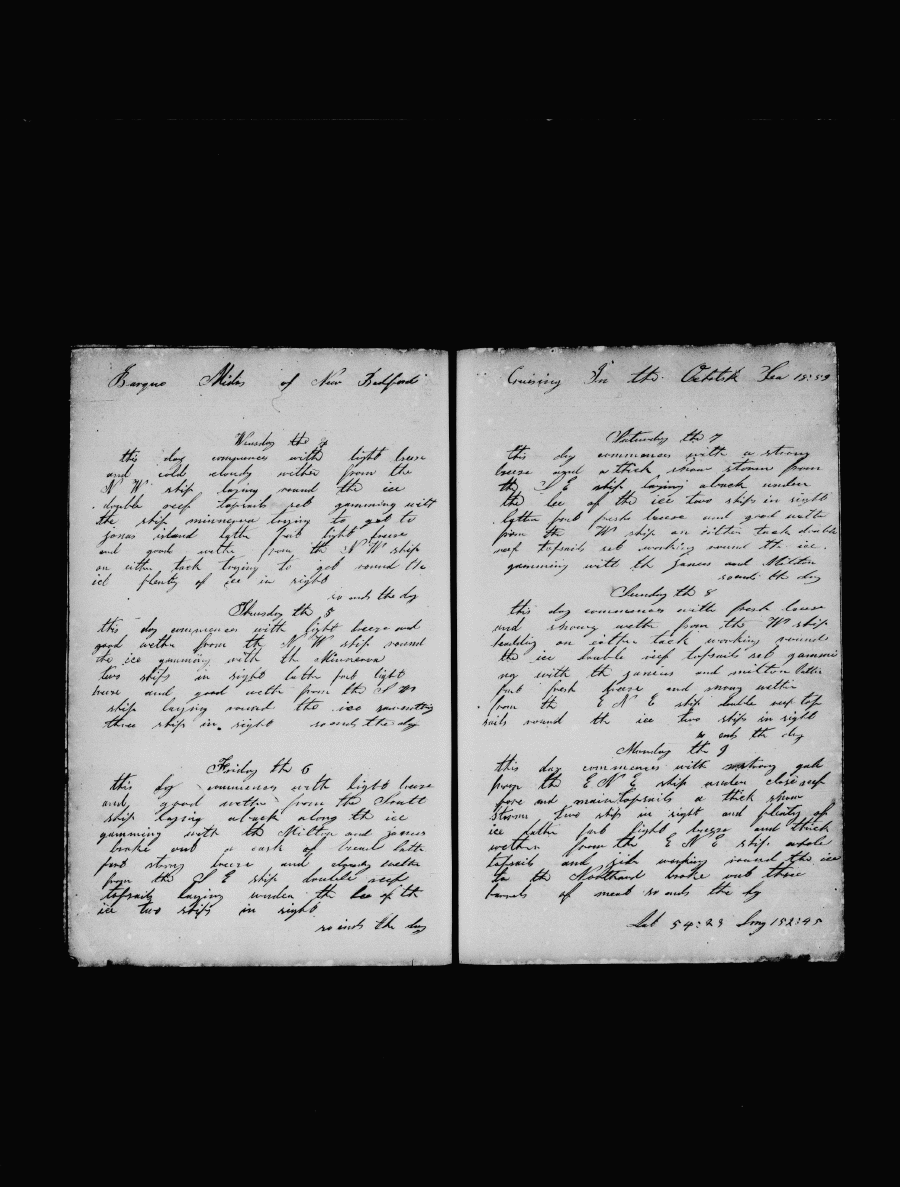 Barque Midas of New Bedford
Wensday the 4
this day commences with light breese
and cold cloudy wether from the
N W ship laying round the ice
double reef topsails set gamming with
the ship minnerva trying to get to
jonas island latter part light breese
and good wether from the N W ship
on either tack trying to get round the
ice plenty of ice in sight
so ends the day
Thursday th 5
this day commences with light breeze and
good wether from the N W ship round
the ice gamming with the Minnerva
two ships in sight latter part light
breese and good wether from the S
ship laying round the ice
three ships in sight so ends the day
Friday the 6
this day commences with light breese
and good wether from the South
ship laying aback along the ice
gamming with the Milton and Janus
broke out a cask of bread latter
part strong breeze and cloudy wether
from the S E ship double reef
topsails laying under the lee of the
ice two ships in sight
so ends the day
Cruising In the Ochotsk Sea 18:59
Saturday the 7
this day commences with a strong
breeze and a thick snow storm from
the S E ship laying aback under
the lee of the ice two ships in sight
latter part fresh breese and good wether
from the W ship on either tack double
reef topsails set working round the ice
gamming with the Janus and Milton
so ends the day
Sunday the 8
this day commences with fresh breese
and snowy wether from the W ship
heading on either tack working round
the ice double reef topsails set gammi
ng with the janius and milton latter
part fresh breeze and snowy wether
from the E N E ship double reef top
sails round the ice two ships in sight
so ends the day
Monday the 9
this day commences with strong gale
from the E N E ship under close reef
fore and main topsails a thick snow
storm two ships in sight and plenty of
ice latter part light breeze and thick
wether from the E N E ship whole
topsails and jib working round the ice
to the Northard broke out three
barrels of meat so ends the day
Lat 54:23 Long 152:45